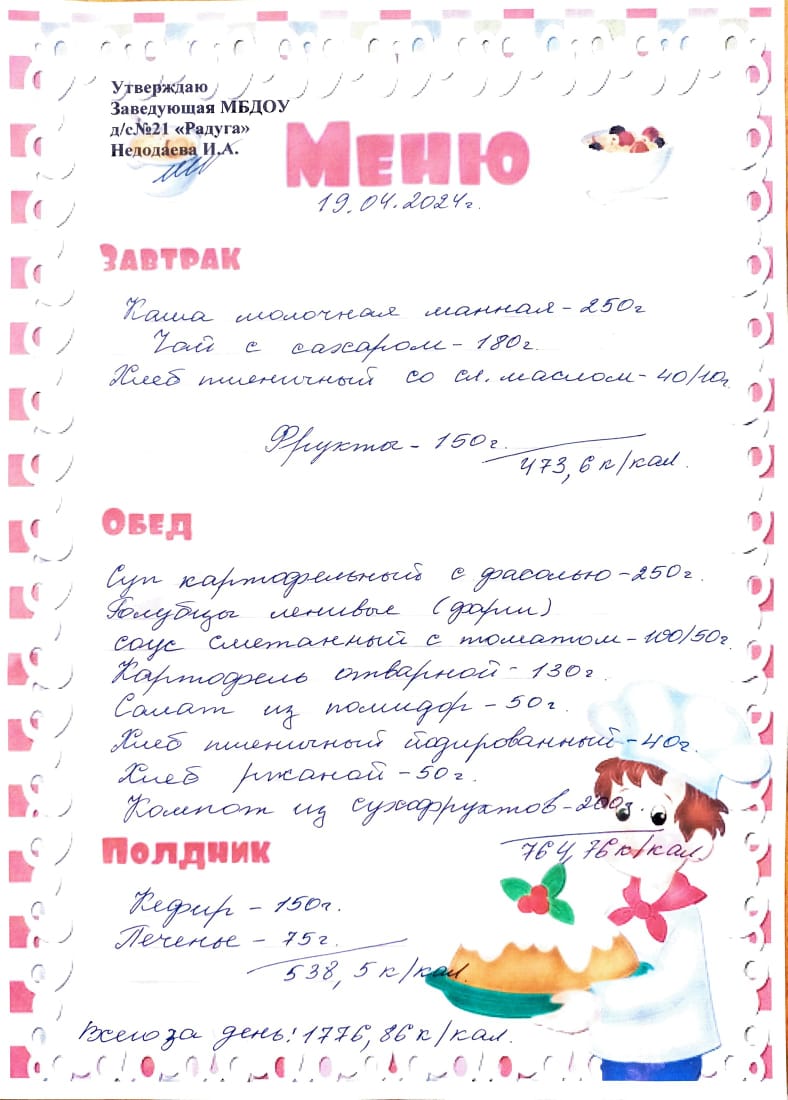 Утверждаю
Заведующая МБДОУ
д/с№21 «Радуга»
Недодаева И.А.
Меню
19.04.2024г.
Завтрак
Каша молочная манная - 250г
Чай с сахаром - 180г.
Хлеб пшеничный со сл. маслом - 40/10г.
Фрукты - 150г.
473,6 к/кал.
Обед
Суп картофельный с фасолью - 250г.
Голубцы ленивые (фарш)
соус сметанный с томатом - 100/50г.
Картофель отварной - 130г.
Салат из помидор - 50г.
Хлеб пшеничный йодированный - 40г.
Хлеб ржаной - 50г.
Компот из сухофруктов - 200г.
764,76 к/кал.
Полдник
Кефир - 150г.
Печенье - 75г.
538,5 к/кал.
Всего за день: 1776,86 к/кал.